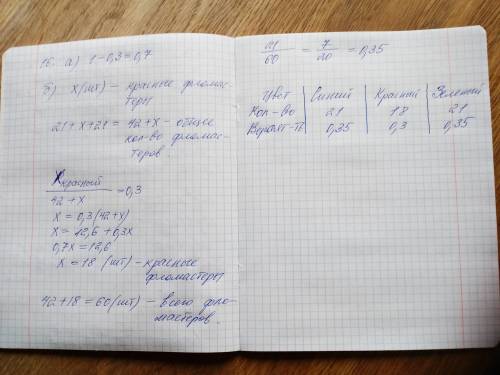 16. а) 1-0,3=0,7
б) x(шт) - красные фломас-
теры
21+x+21 = 42+x - общее
кол-во фломас-
теров.
X красный
42+x
=0,3
x=0,3(42+x)
x=12,6+0,3x
0,7x=12,6
x=18 (шт) - красные
фломастеры
42+18=60(шт) - всего фло-
мастеров.
21/60 = 7/20 = 0,35
Цвет | Синий | Красный | Зеленый
Кол-во | 21 | 18 | 21
Вероят-ть | 0,35 | 0,3 | 0,35